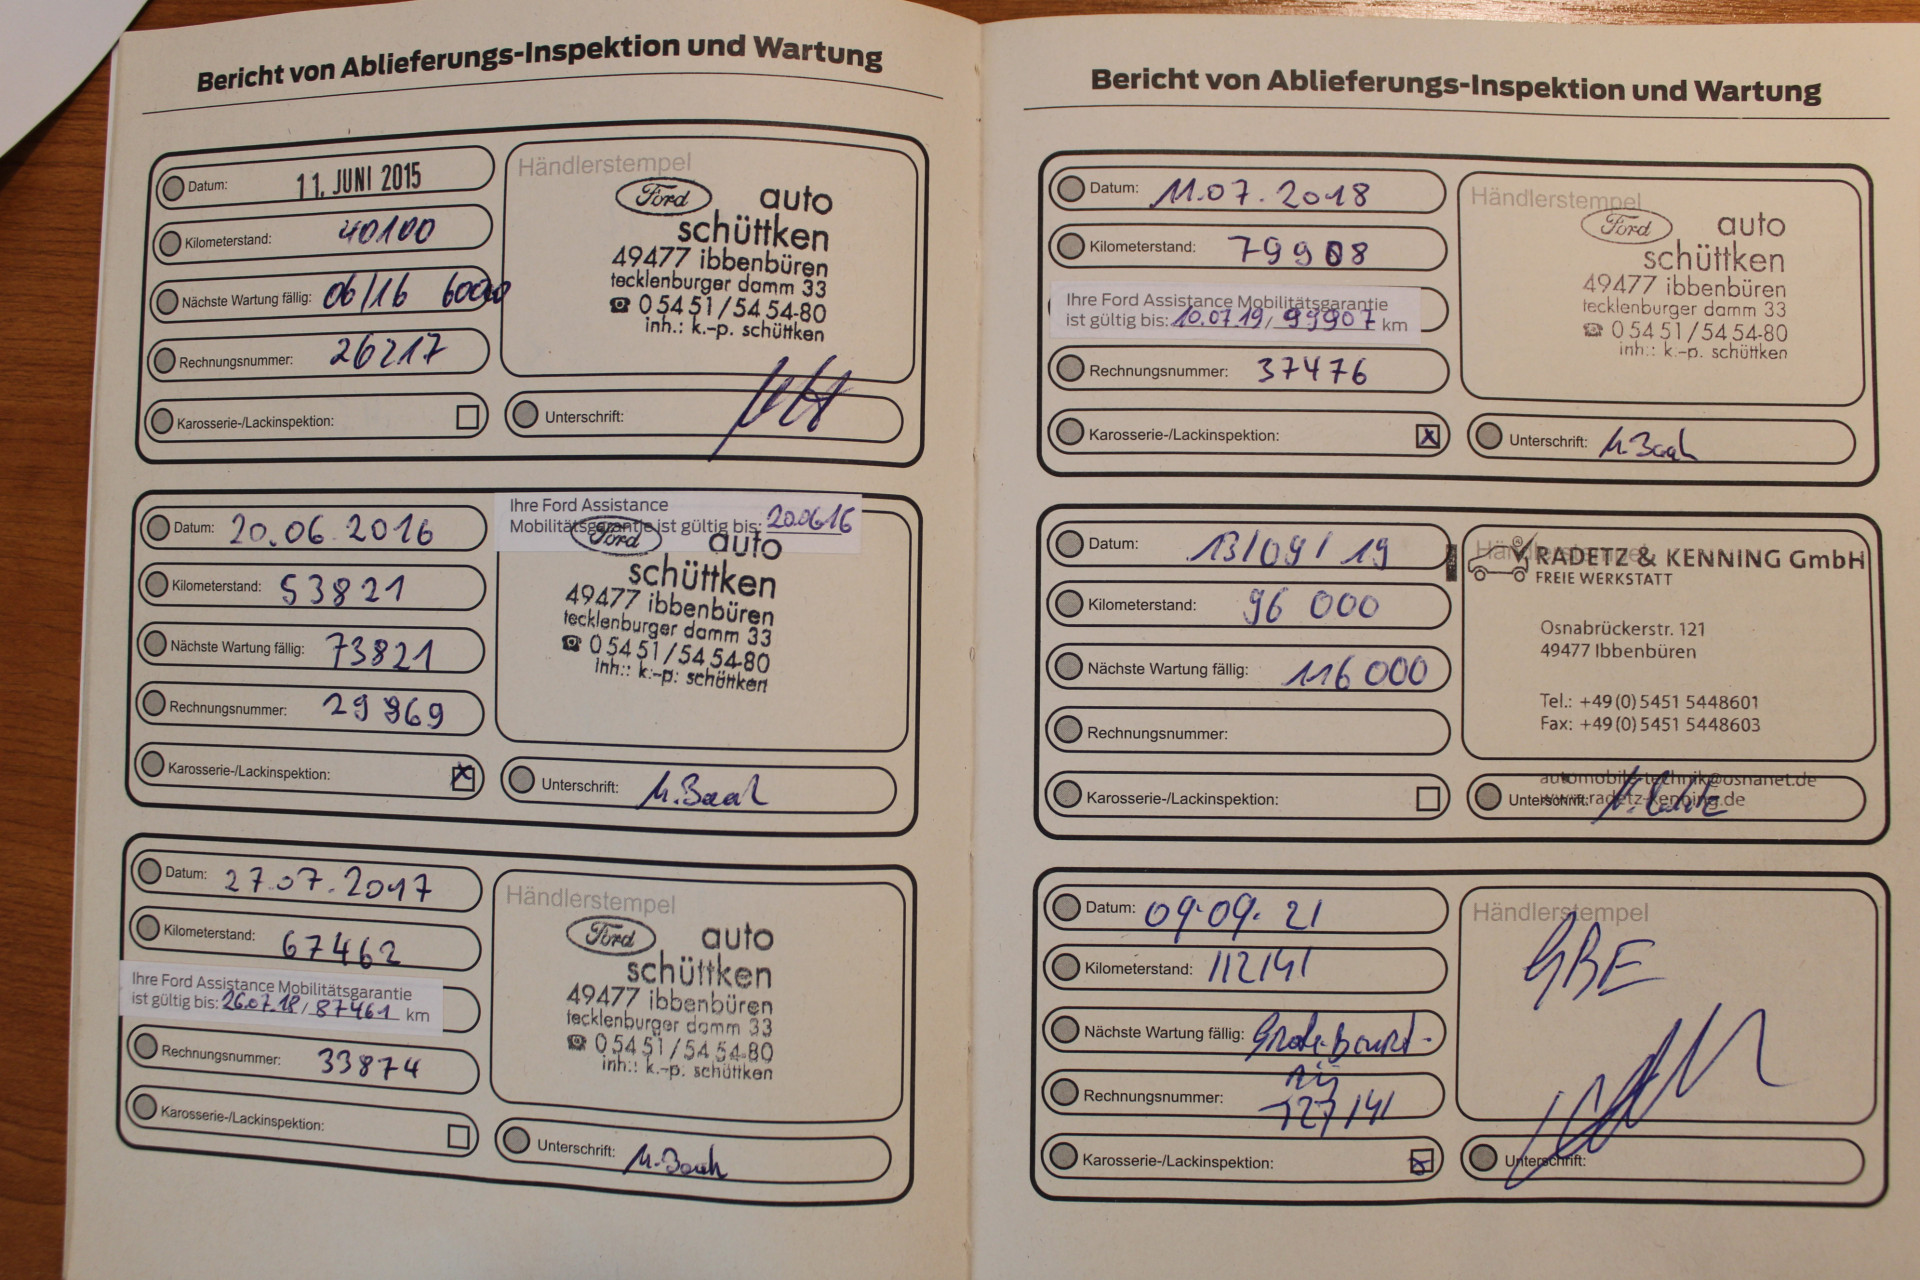 Bericht von Ablieferungs-Inspektion und Wartung
Datum: 11. JUNI 2015
Kilometerstand: 40100
Nächste Wartung fällig: 06/16 60000
Rechnungsnummer: 26217
Karosserie-/Lackinspektion:
Händlerstempel
Ford auto
schüttken
49477 ibbenbüren
tecklenburger damm 33
☎ 05451/5454-80
inh.: k.-p. schüttken
Unterschrift:
Datum: 20.06.2016
Kilometerstand: 53821
Nächste Wartung fällig: 73821
Rechnungsnummer: 29969
Karosserie-/Lackinspektion: x
Ihre Ford Assistance
Mobilitätsgarantie ist gültig bis: 20.06.16
Ford auto
schüttken
49477 ibbenbüren
tecklenburger damm 33
☎ 05451/5454-80
inh.: k.-p. schüttken
Unterschrift: M. Baak
Datum: 27.07.2017
Kilometerstand: 67462
Ihre Ford Assistance Mobilitätsgarantie
ist gültig bis: 26.07.18 / 87461 km
Rechnungsnummer: 33874
Karosserie-/Lackinspektion:
Händlerstempel
Ford auto
schüttken
49477 ibbenbüren
tecklenburger damm 33
☎ 05451/5454-80
inh.: k.-p. schüttken
Unterschrift: M. Baak
Bericht von Ablieferungs-Inspektion und Wartung
Datum: 11.07.2018
Kilometerstand: 79908
Ihre Ford Assistance Mobilitätsgarantie
ist gültig bis: 10.07.19 / 99907 km
Rechnungsnummer: 37476
Karosserie-/Lackinspektion: x
Händlerstempel
Ford auto
schüttken
49477 ibbenbüren
tecklenburger damm 33
☎ 05451/5454-80
inh.: k.-p. schüttken
Unterschrift: M. Baak
Datum: 13/09/19
Kilometerstand: 96 000
Nächste Wartung fällig: 116 000
Rechnungsnummer:
Karosserie-/Lackinspektion:
Händlerstempel
RADETZ & KENNING GmbH
FREIE WERKSTATT
Osnabrückerstr. 121
49477 Ibbenbüren
Tel.: +49(0)5451 5448601
Fax: +49(0)5451 5448603
automobile-technik@osnanet.de
www.radetz-kenning.de
Unterschrift:
Datum: 09.09.21
Kilometerstand: 112141
Nächste Wartung fällig:
Rechnungsnummer: 127141
Karosserie-/Lackinspektion: x
Händlerstempel
GBE
Unterschrift: